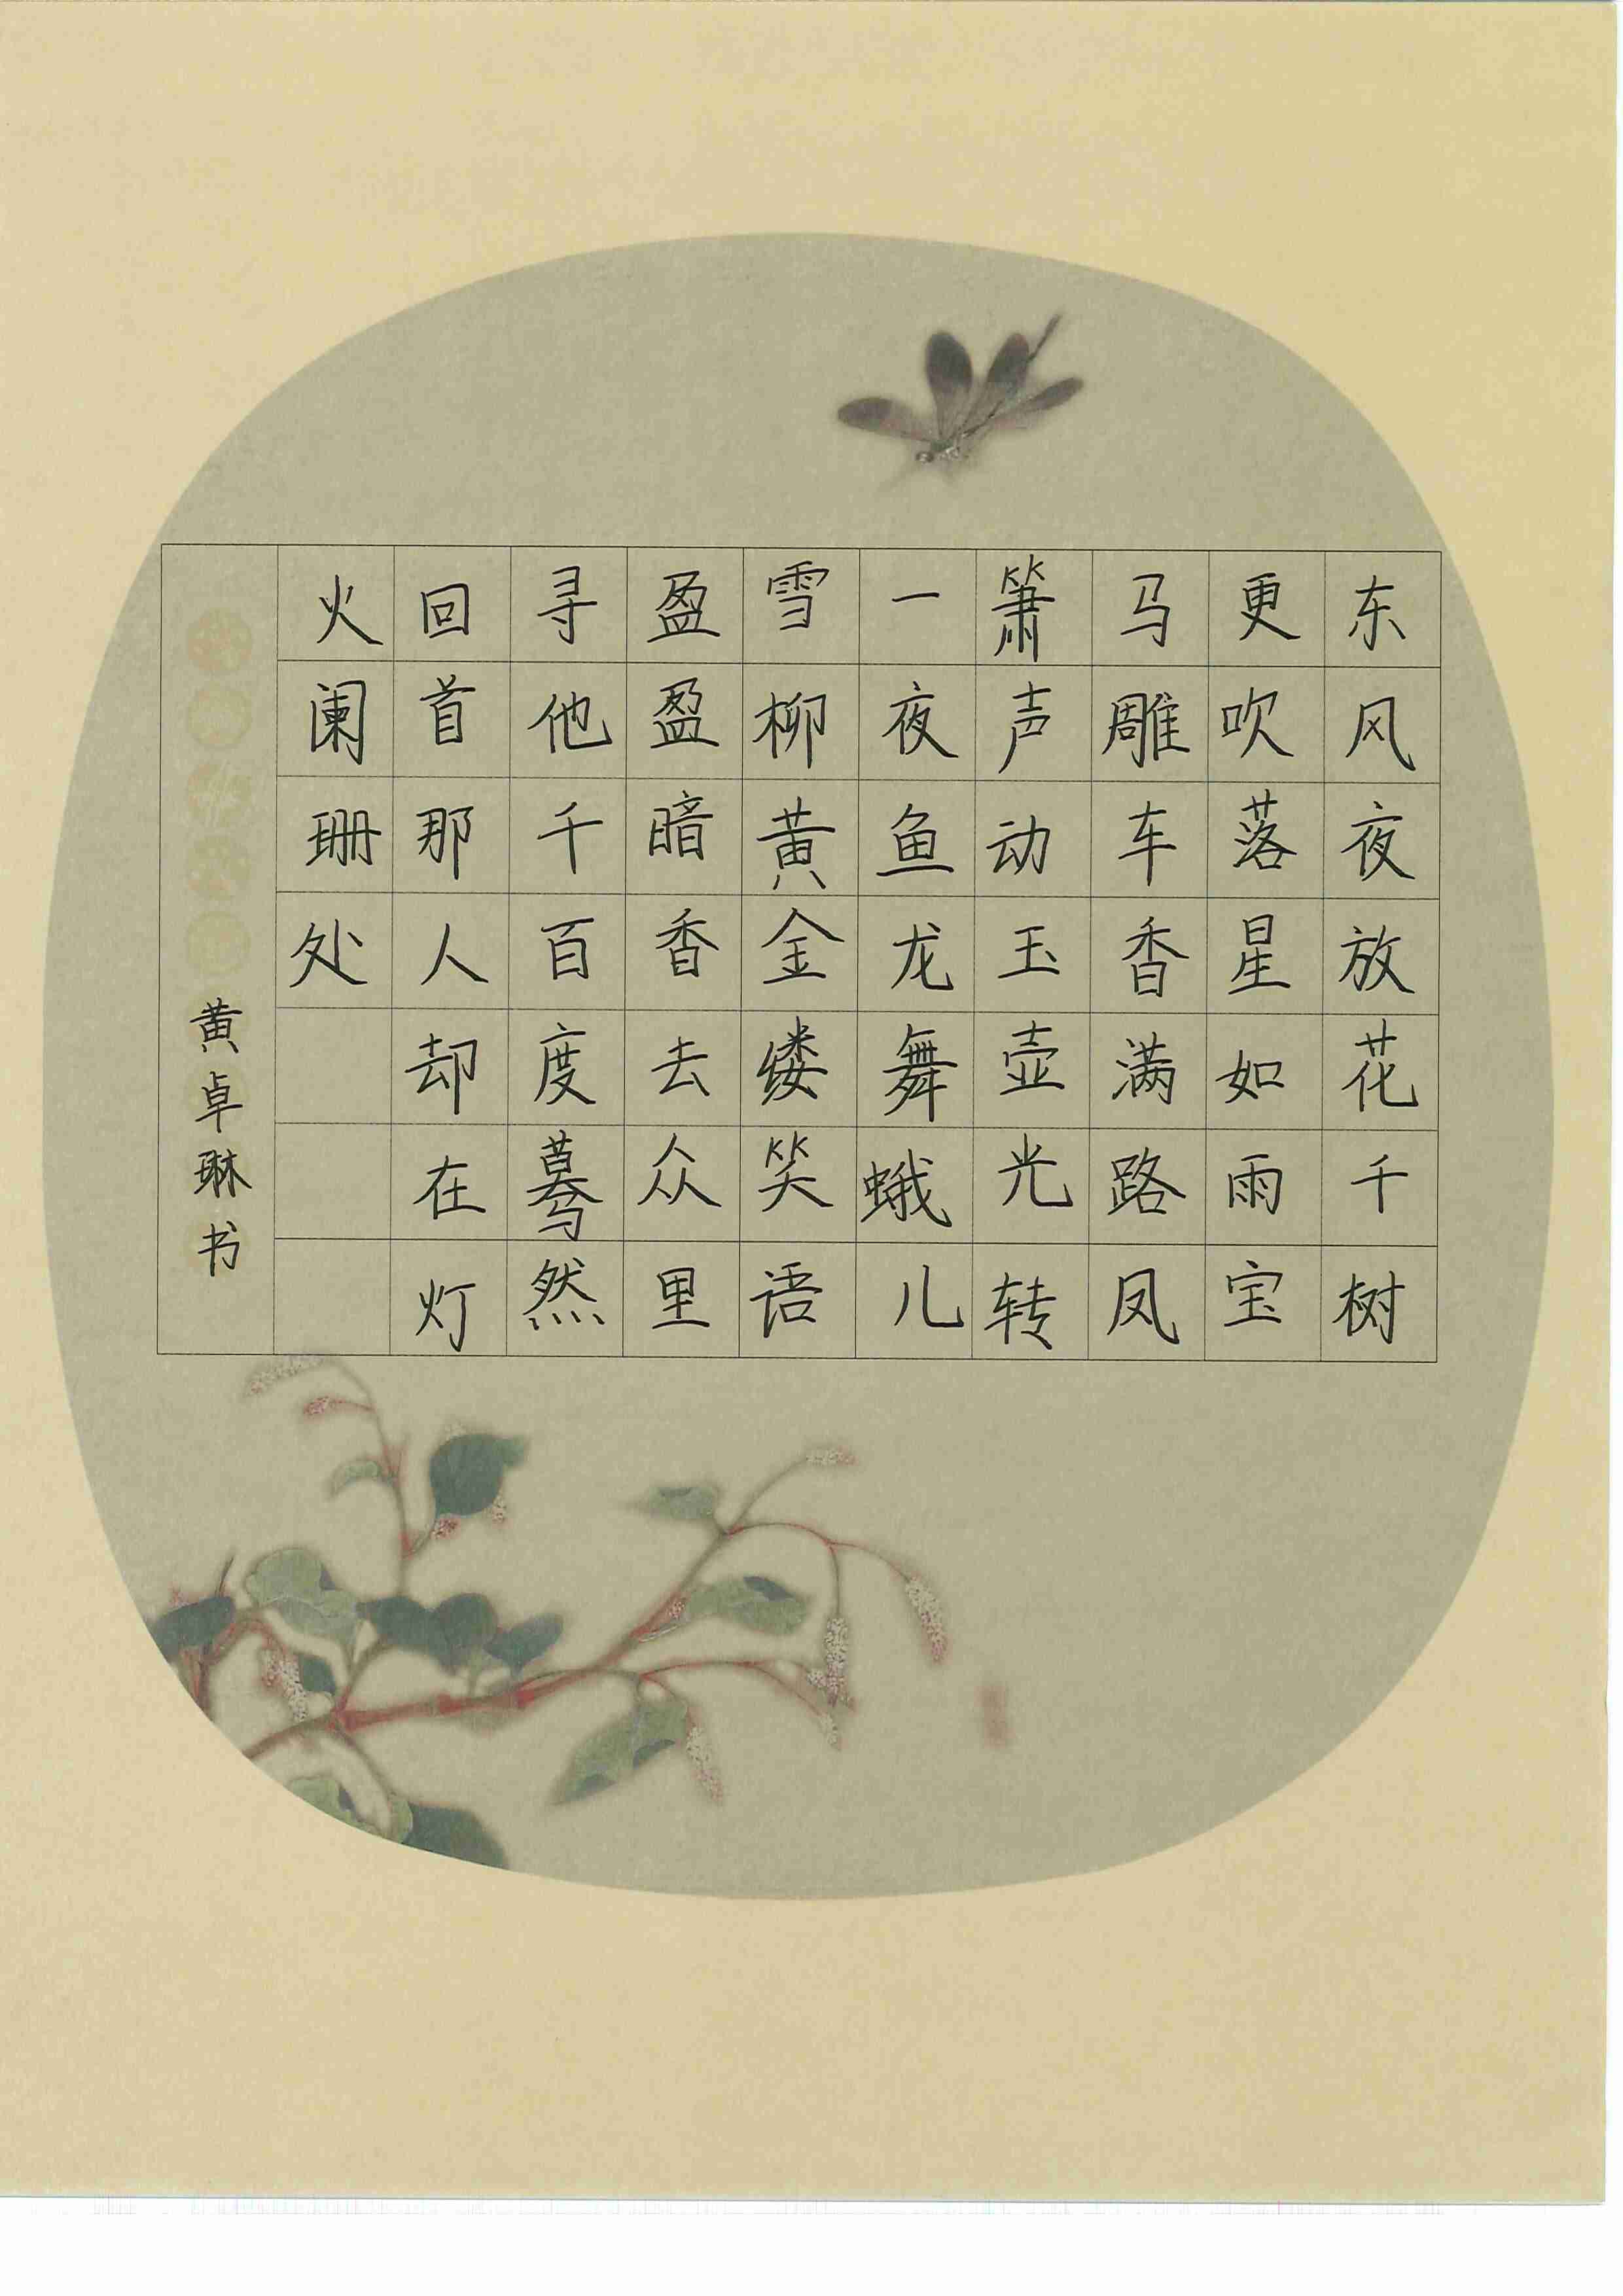 东风夜放花千树
更吹落星如雨宝
马雕车香满路凤
箫声动玉壶光转
一夜鱼龙舞蛾儿
雪柳黄金缕笑语
盈盈暗香去众里
寻他千百度蓦然
回首那人却在灯
火阑珊处
黄卓琳书